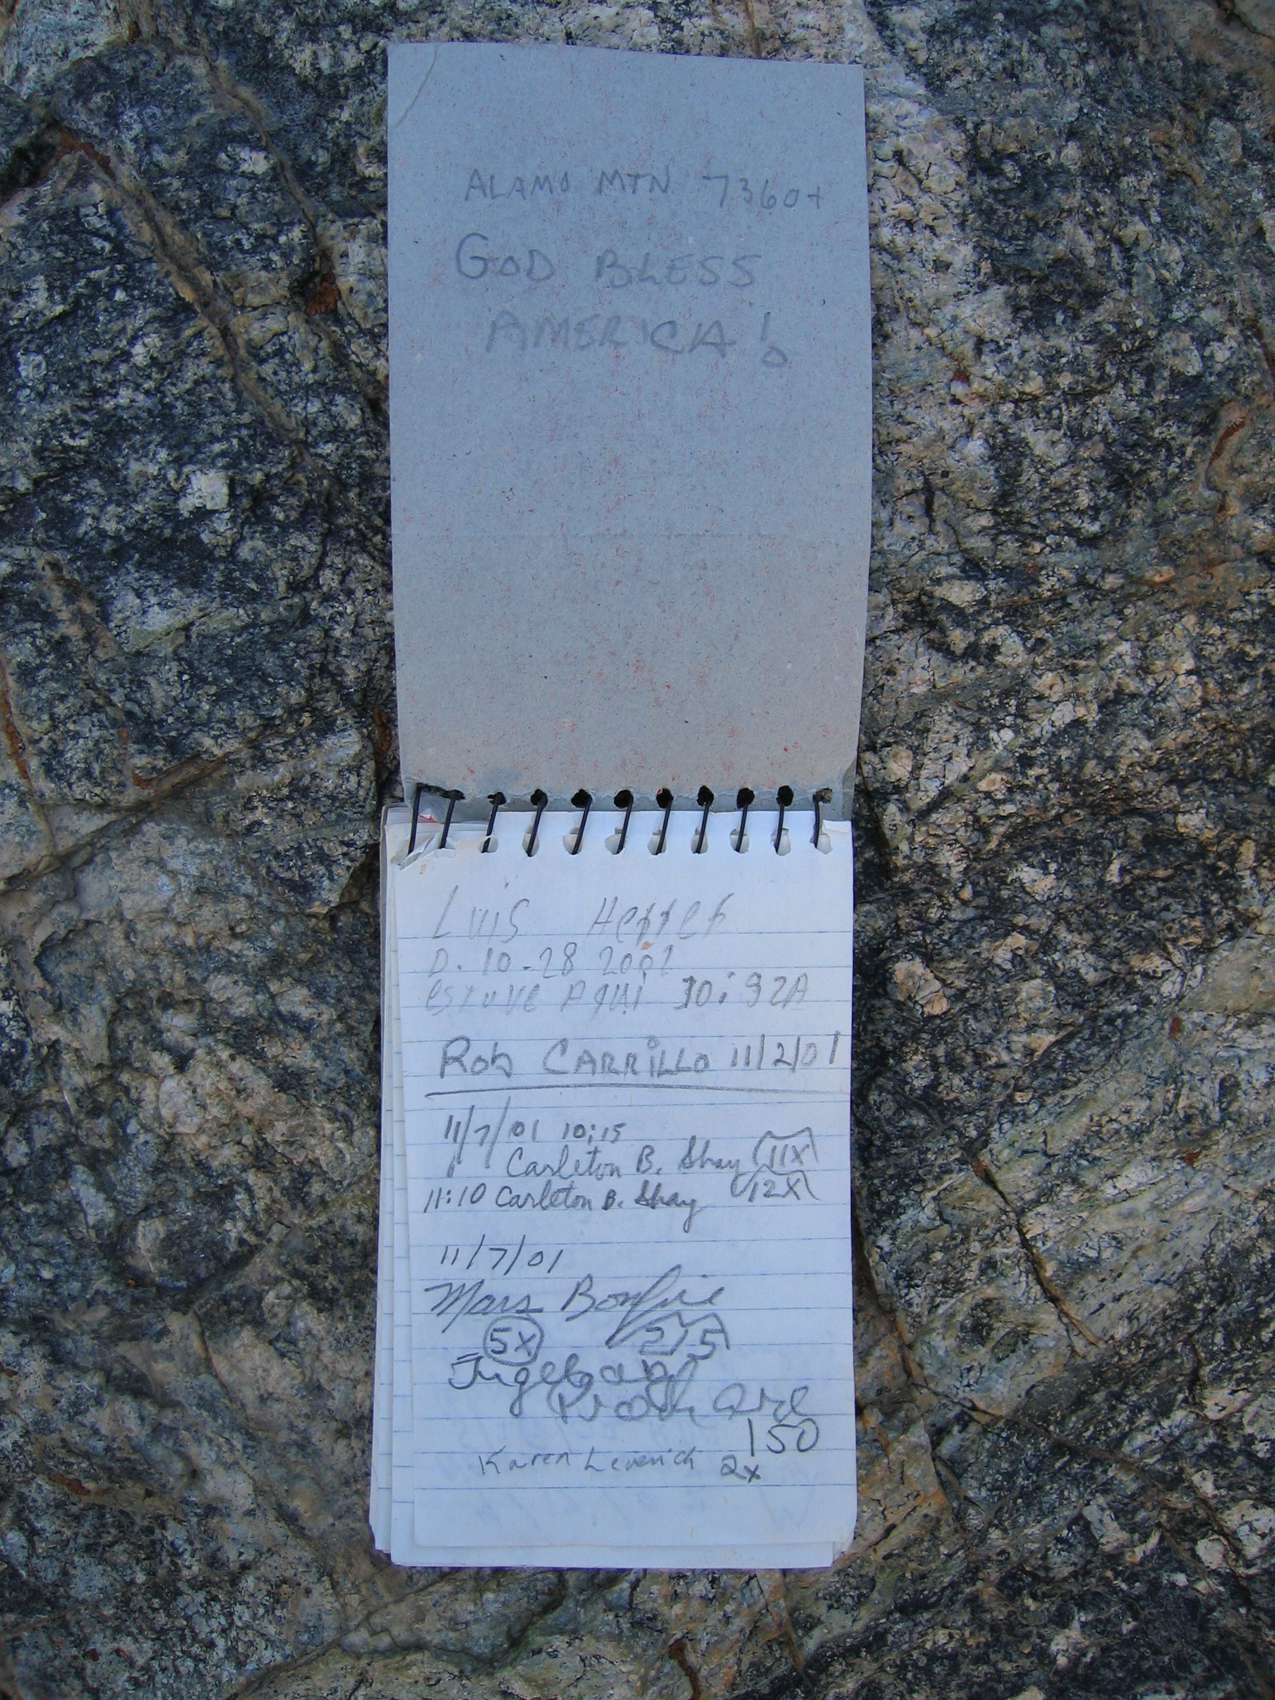 ALAMO MTN 7360+
GOD BLESS
AMERICA!
Luis
D. 10-28 2001
estuve Aqui 10:32A
Rob CARRILLO 11/2/01
11/7/01 10:15
Carleton B. Shay 11x
11:10 Carleton B. Shay 12x
11/7/01
Mars Bonfire
5x 275
150
Karen Leverich 2x